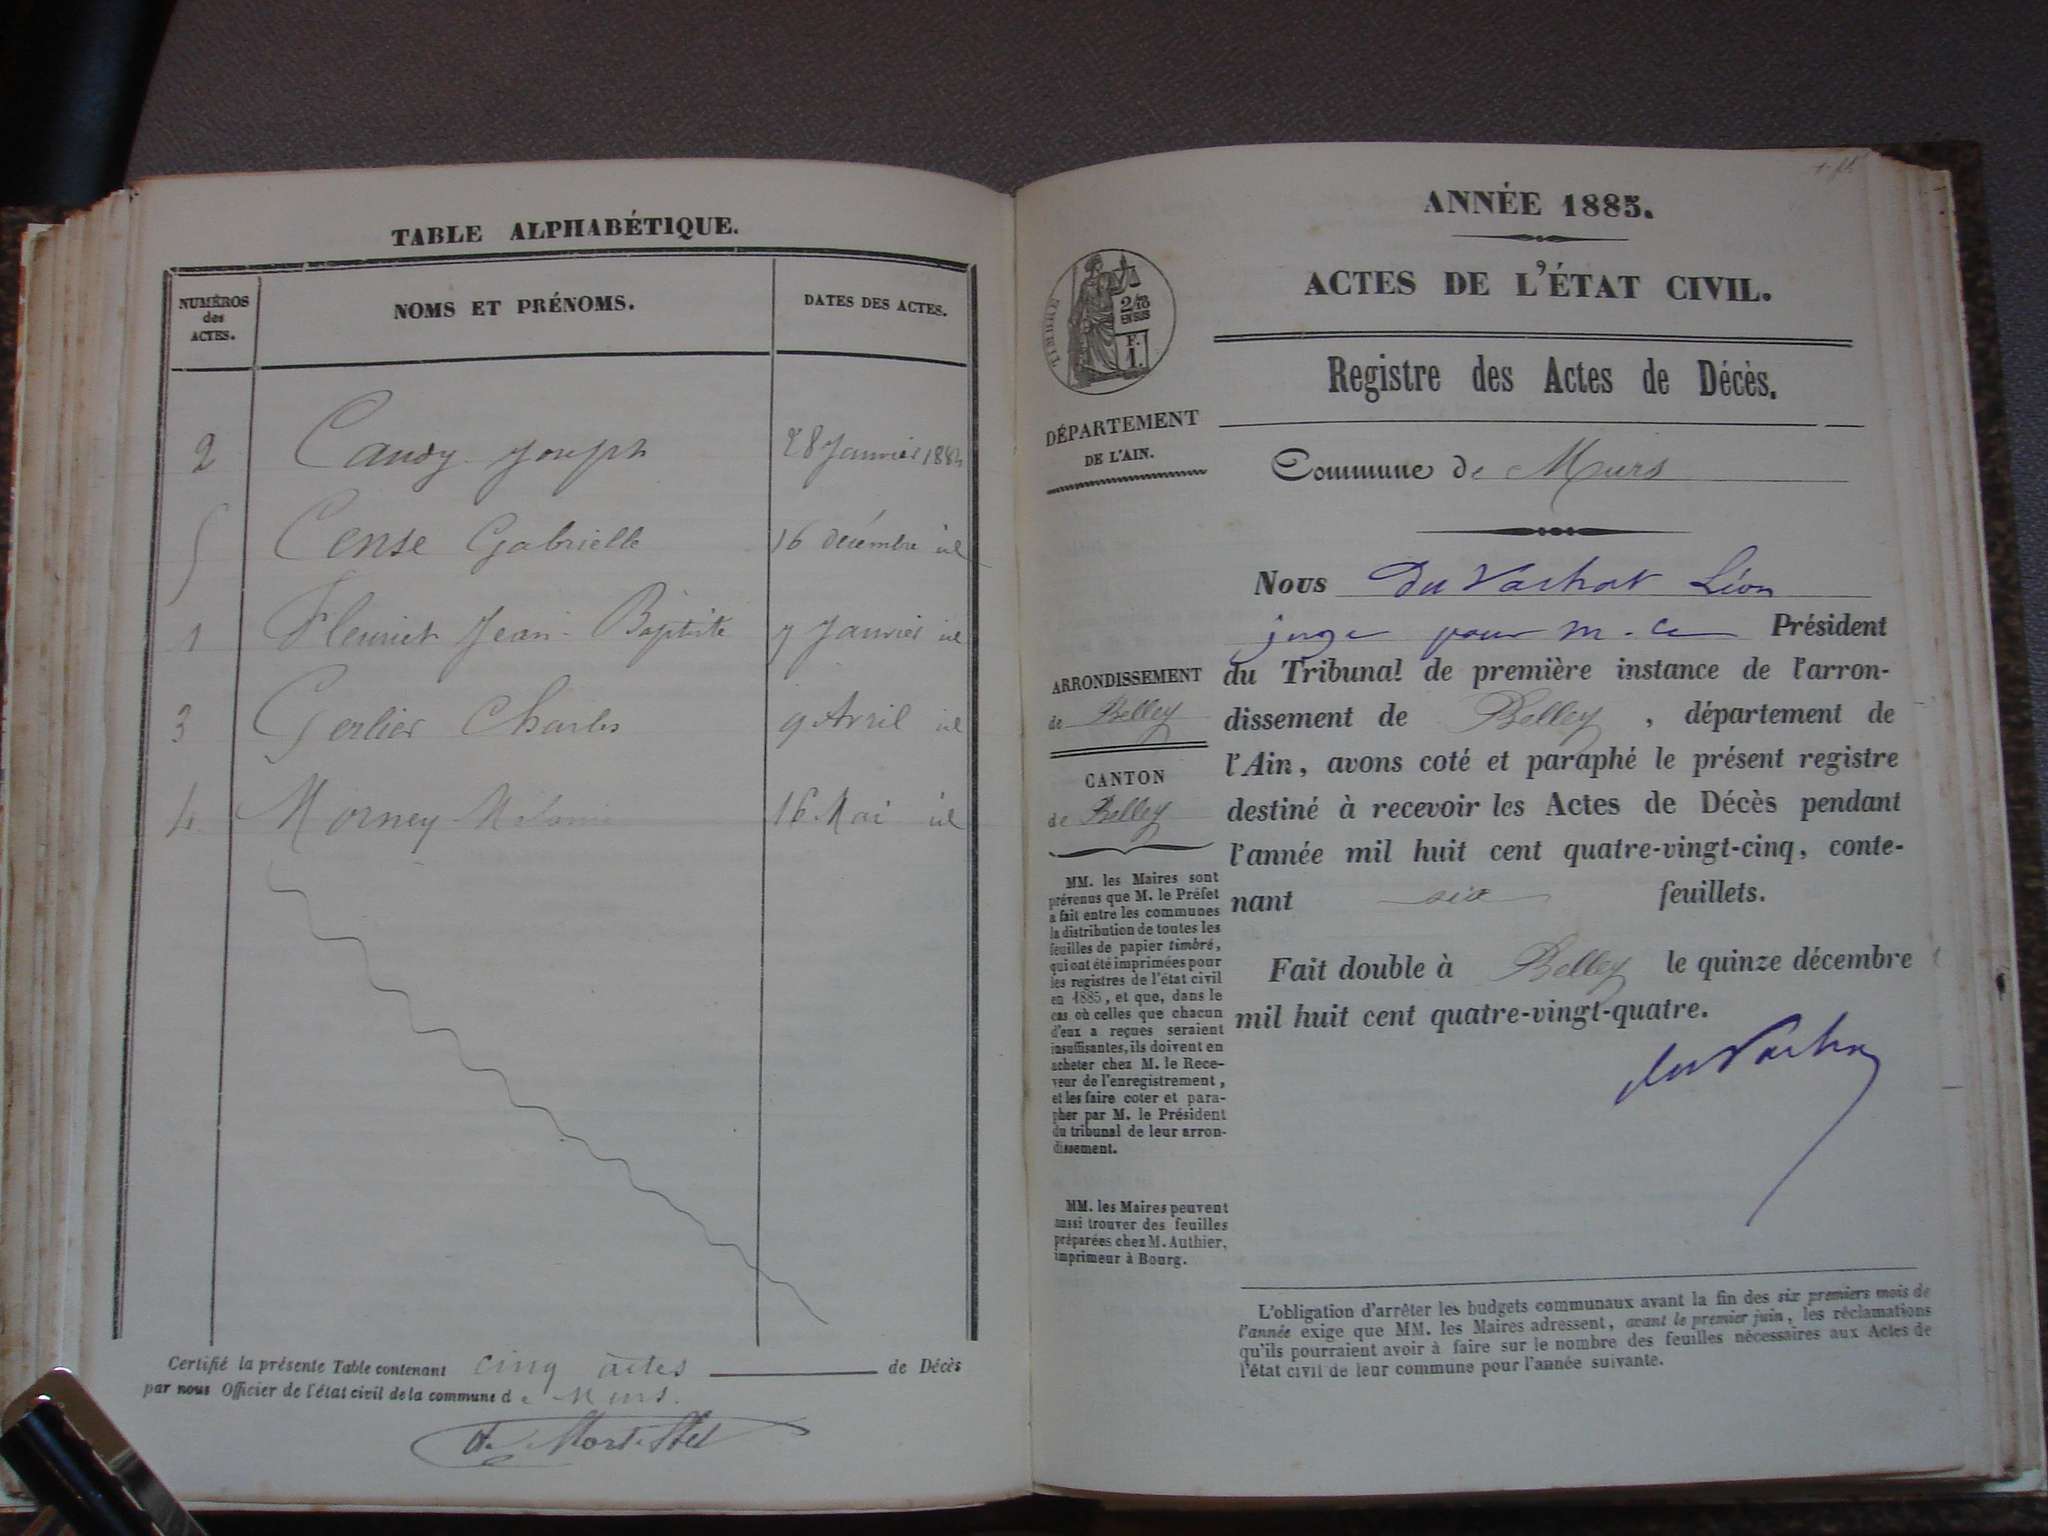 TABLE ALPHABÉTIQUE.
NUMÉROS des ACTES.
NOMS ET PRÉNOMS.
DATES DES ACTES.
2 Candy Joseph 28 Janvier 1884
5 Cense Gabrielle 16 décembre id
1 Fleuriet Jean-Baptiste 7 Janvier id
3 Gerlier Charles 9 Avril id
4 Morney 16 Mai id
Certifié la présente Table contenant cinq actes de Décès
par nous Officier de l'état civil de la commune de Murs.
ANNÉE 1885.
ACTES DE L'ÉTAT CIVIL.
TIMBRE
2/10
EN SUS
F.
1.
Registre des Actes de Décès.
DÉPARTEMENT
DE L'AIN.
Commune de Murs
Nous Du Vachat Léon
juge pour m. le Président
du Tribunal de première instance de l'arron-
dissement de Belley, département de
l'Ain, avons coté et paraphé le présent registre
destiné à recevoir les Actes de Décès pendant
l'année mil huit cent quatre-vingt-cinq, conte-
nant six feuillets.
Fait double à Belley le quinze décembre
mil huit cent quatre-vingt-quatre.
du Vachat
ARRONDISSEMENT
de Belley
CANTON
de Belley
MM. les Maires sont
prévenus que M. le Préfet
a fait entre les communes
la distribution de toutes les
feuilles de papier timbré,
qui ont été imprimées pour
les registres de l'état civil
en 1885, et que, dans le
cas où celles que chacun
d'eux a reçues seraient
insuffisantes, ils doivent en
acheter chez M. le Rece-
veur de l'enregistrement,
et les faire coter et para-
pher par M. le Président
du tribunal de leur arron-
dissement.
MM. les Maires peuvent
aussi trouver des feuilles
préparées chez M. Authier,
imprimeur à Bourg.
L'obligation d'arrêter les budgets communaux avant la fin des six premiers mois de
l'année exige que MM. les Maires adressent, avant le premier juin, les réclamations
qu'ils pourraient avoir à faire sur le nombre des feuilles nécessaires aux Actes de
l'état civil de leur commune pour l'année suivante.